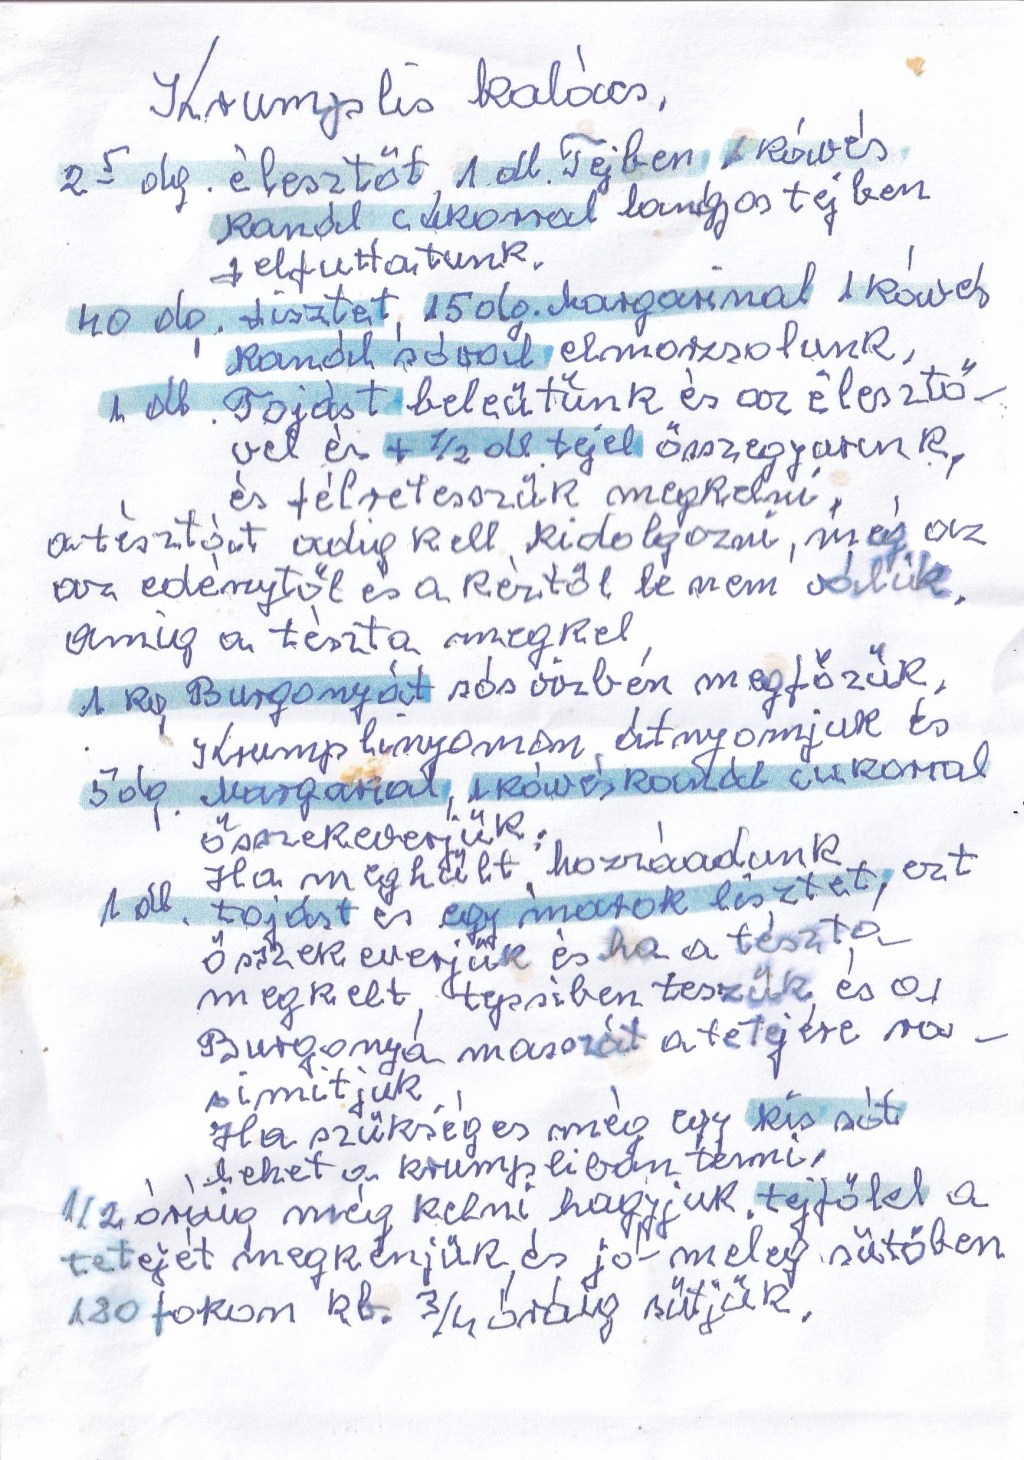 Krumplis kalács,
2-5 dg. èlesztőt, 1 dl. Tejben 1 kávés
kanál cukorral langyos tejben
felfuttatunk.
40 dg. lisztet, 15 dg. Margarinal 1 kávés
kanál sóval elmorzsolunk,
1 db. Tojást beleütünk és az élesztő-
vel és + 1/2 dl tejel összegyurunk,
és félretesszük megkelni,
a tésztát adig kell kidolgozni, míg az
az edénytől és a kéztől le nem válik.
amig a tészta megkel,
1 kg Burgonyát sós vízben megfőzük,
Krumplinyomón átnyomjuk és
5 dg. Margarial, 1 kávéskanál cukorral
összekeverjük.
Ha meghült, hozzáadunk
1 db. tojást és egy marok lisztet, ezt
összekeverjük és ha a tészta
megkelt, tepsiben teszük, és a
Burgonyá masszát a tetejére rá-
simitjuk
Ha szükséges még egy kis sót
lehet a krumpliban tenni,
1/2 óráig még kelni hagyjuk, tejföl​el a
tetejét megkenjük és jó meleg sütőben
180 fokon kb. 3/4 óráig sütjük.